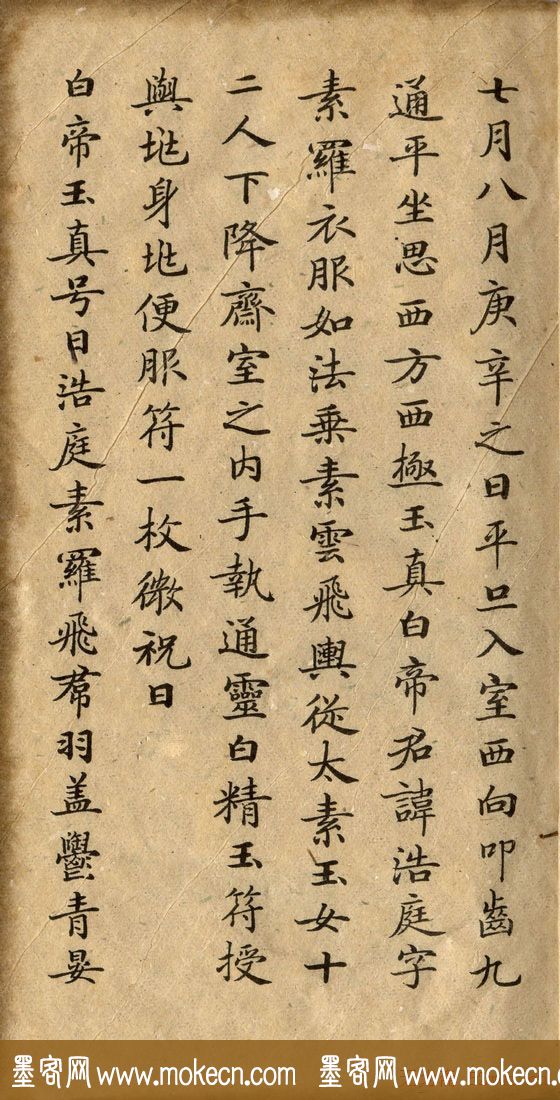 七月八月庚辛之日平旦入室西向叩齒九
通平坐思西方西極玉真白帝君諱浩庭字
素羅衣服如法乗素雲飛輿從太素玉女十
二人下降齋室之内手執通靈白精玉符授
與𡉏身𡉏便服符一枚微祝曰
白帝玉真号曰浩庭素羅飛帬羽盖鬱青晏
墨客网 www.mokecn.com 墨客网 www.mokecn.com